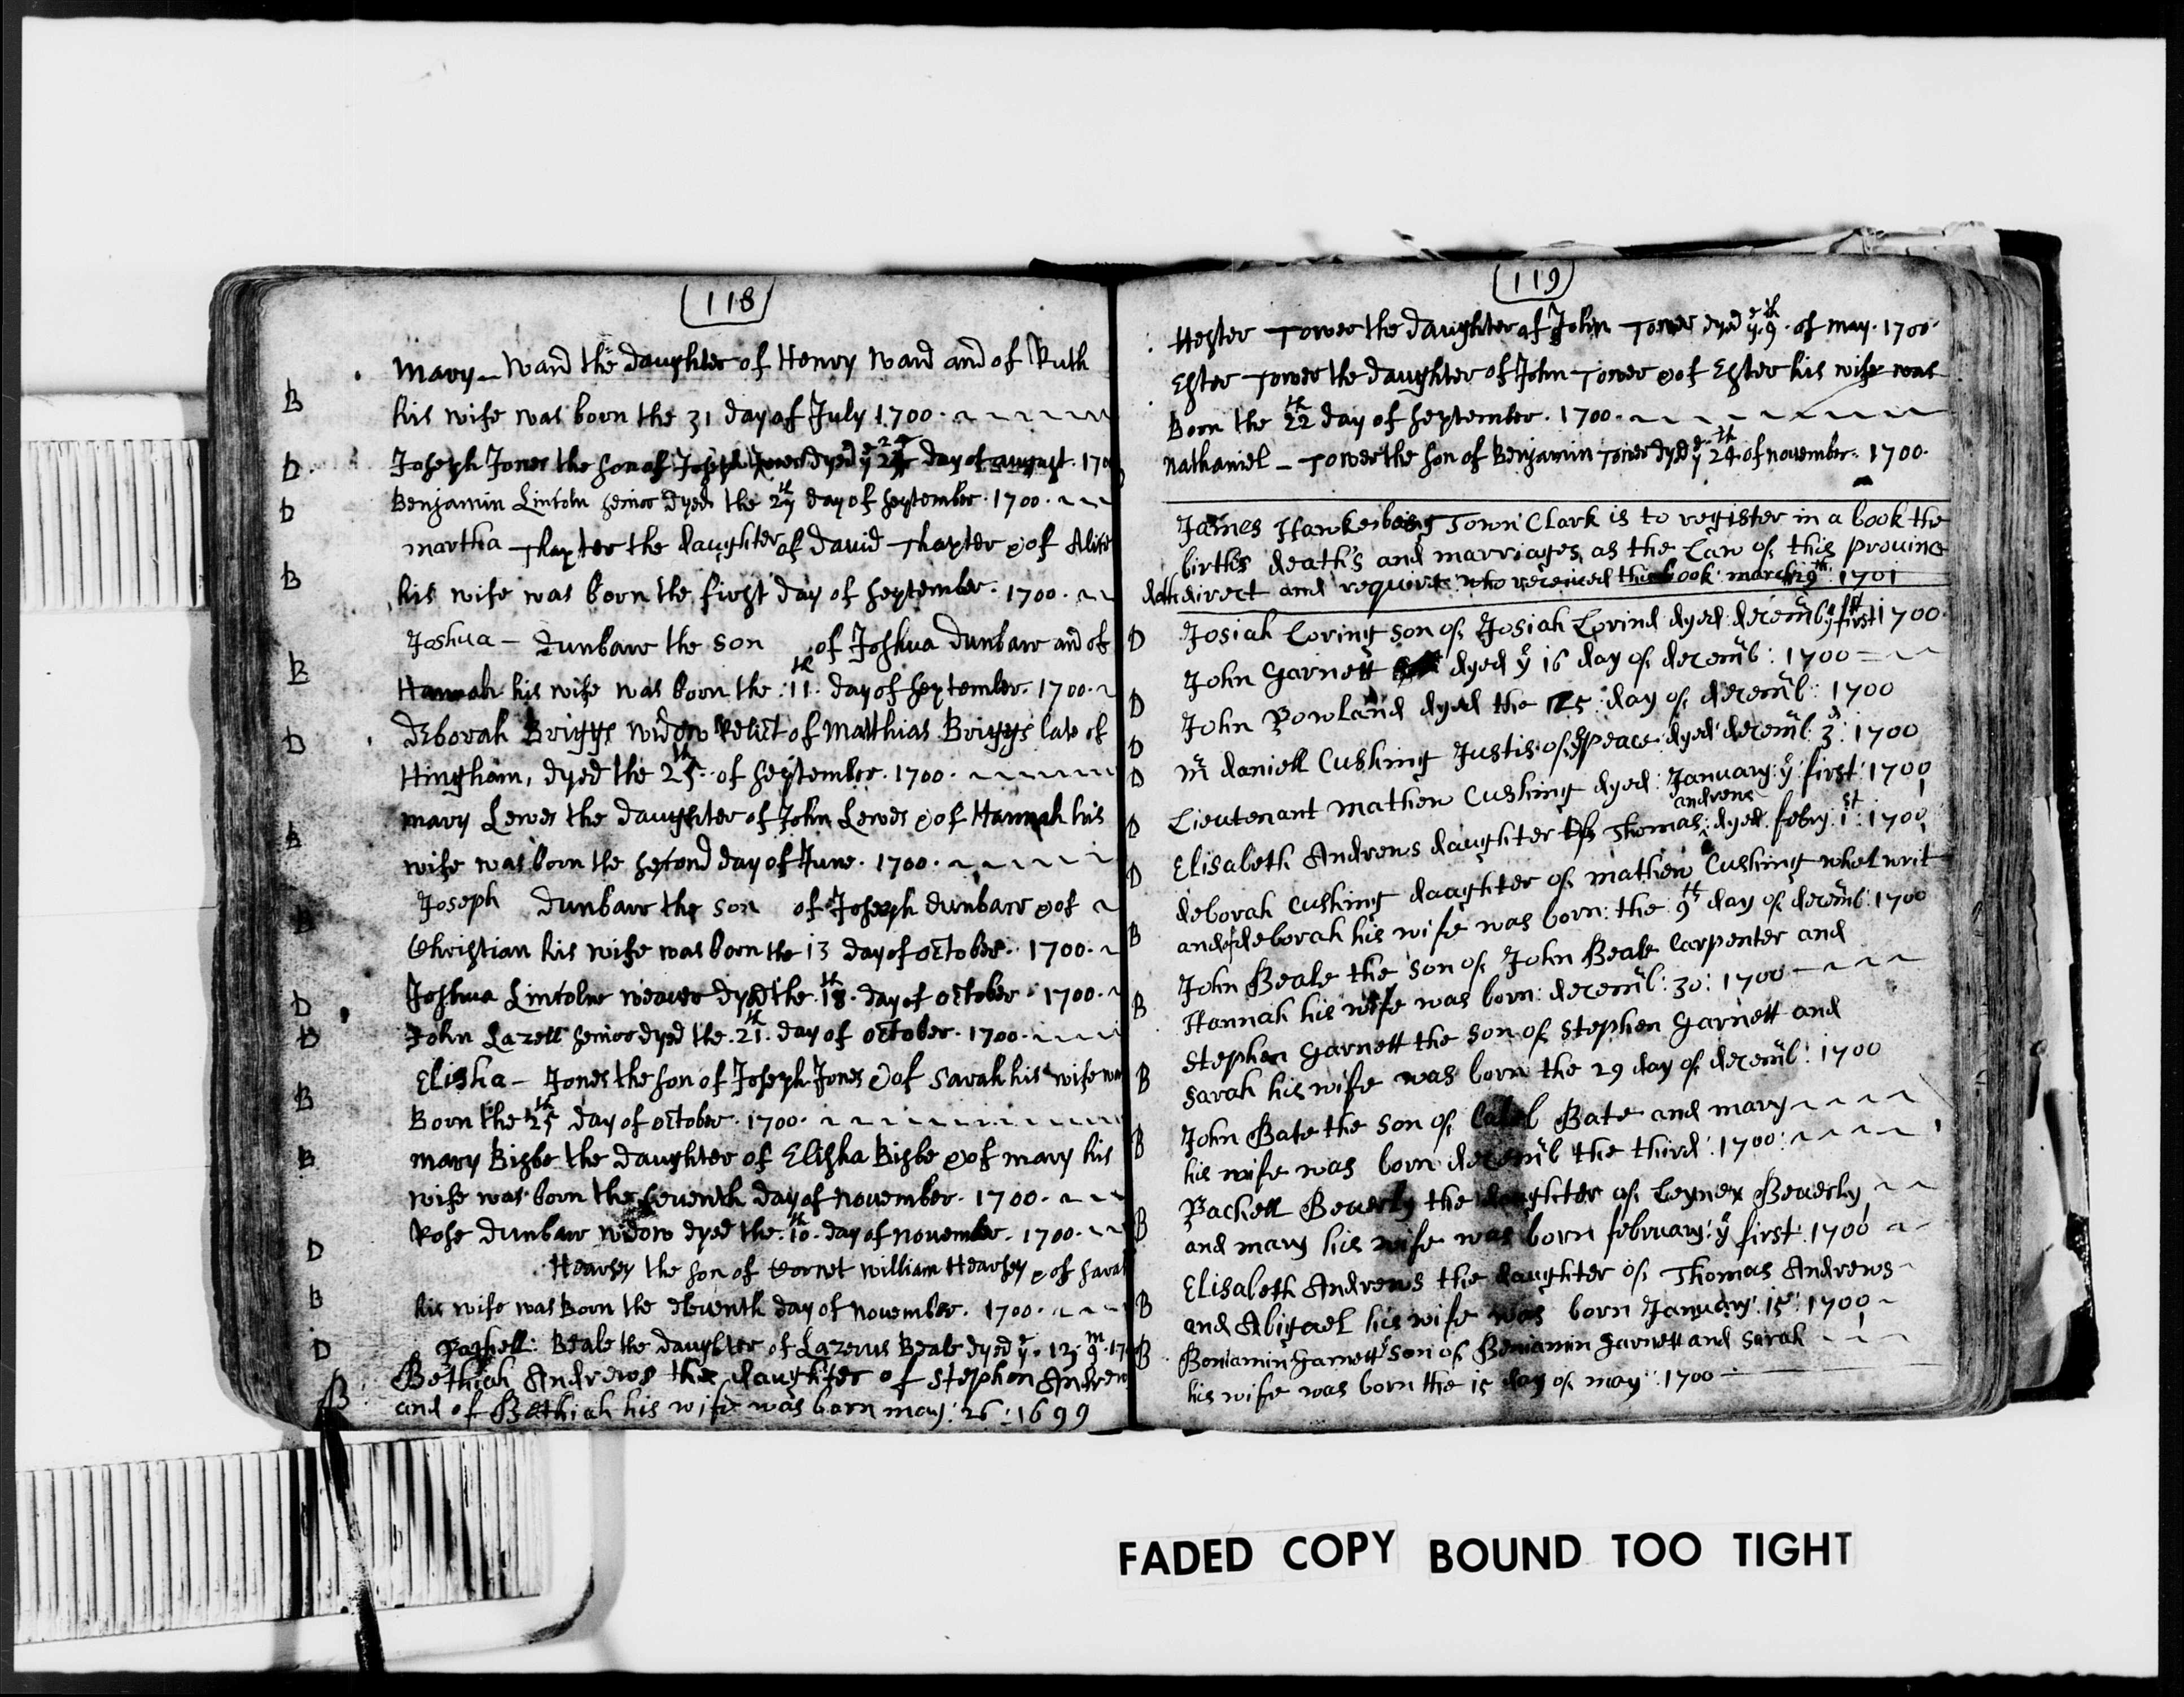 118
Mary - Ward the daughter of Henry Ward and of Ruth
B his wife was born the 31 day of July 1700.
D Joseph Jones the son of Joseph Jones dyed ye day of august. 170
D Benjamin Lintoln senior dyed the 27th day of September. 1700.
martha Thaxter the daughter of david Thaxter & of Alice
B his wife was born the first day of September. 1700.
Joshua - dunbarr the son of Joshua dunbarr and of
B Hannah his wife was born the 11th day of September. 1700.
D Deborah Briggs widow Relict of Matthias Briggs late of
Hingham, dyed the 25th of September. 1700.
mary Lewes the daughter of John Lewes & of Hannah his
B wife was born the second day of June. 1700.
Joseph dunbarr the son of Joseph dunbarr & of
B Christian his wife was born the 13 day of october. 1700.
D Joshua Lintolne weaver dyed the 18th day of october. 1700.
D John Lazell senior dyed the 21th day of october. 1700.
Elisha - Jones the son of Joseph Jones & of Sarah his wife was
B Born the 25th day of october. 1700.
B mary Bisbe the daughter of Elisha Bisbe & of mary his
wife was born the seventh day of november. 1700.
D Rose dunbarr widow dyed the 10th day of november. 1700.
Hearsey the son of Cornet william Hearsey & of Sarah
B his wife was Born the eleventh day of november. 1700.
D Rachell: Beale the daughter of Lazerus Beale dyed ye. 12. 9m. 170
B Bethiah Andrews the daughter of Stephen Andrew
and of Bethiah his wife was born may: 26: 1699
119
Hester Tower the daughter of John Tower dyed ye 9th. of may. 1700.
Ester Tower the daughter of John Tower & of Ester his wife was
Born the 22th day of September. 1700.
Nathaniel - Tower the son of Benjamin Tower dyed ye 24th of november. 1700.
James Hawke being Town Clark is to register in a book the
births deaths and marriages as the Law of this province
doth direct and require who received this book march: 29th: 1701
D Josiah Loring son of Josiah Lorind dyed: decemb: ye first 1700
D John Garnett dyed ye 16 day of decemb: 1700
D John Rowland dyed the 25: day of decemb: 1700
D mr daniell Cushing Justis of ye peace: dyed: decemb: 3d: 1700
D Lieutenant Mathew Cushing dyed: January: ye first: 1700
andrens
D Elisabeth Andrews daughter of Thomas: dyed. febry. 1st: 1700
deborah Cushing daughter of mathew Cushing whelwrit
B and of deborah his wife was born: the: 9th day of decemb: 1700
John Beale the son of John Beale Carpenter and
B Hannah his wife was born: decemb: 30: 1700
Stephen Garnett the son of Stephen Garnett and
B Sarah his wife was born the 29 day of decemb: 1700
B John Bate the son of Caleb Bate and mary
his wife was born decemb the third: 1700:
Rachell Beverly the daughter of Lennex Beverly
B and mary his wife was born february: ye first: 1700
Elisabeth Andrews the daughter of Thomas Andrews
B and Abigael his wife was born January: 15: 1700
B Beniamin Garnett son of Beniamin Garnett and Sarah
his wife was born the 15 day of may: 1700
FADED COPY BOUND TOO TIGHT